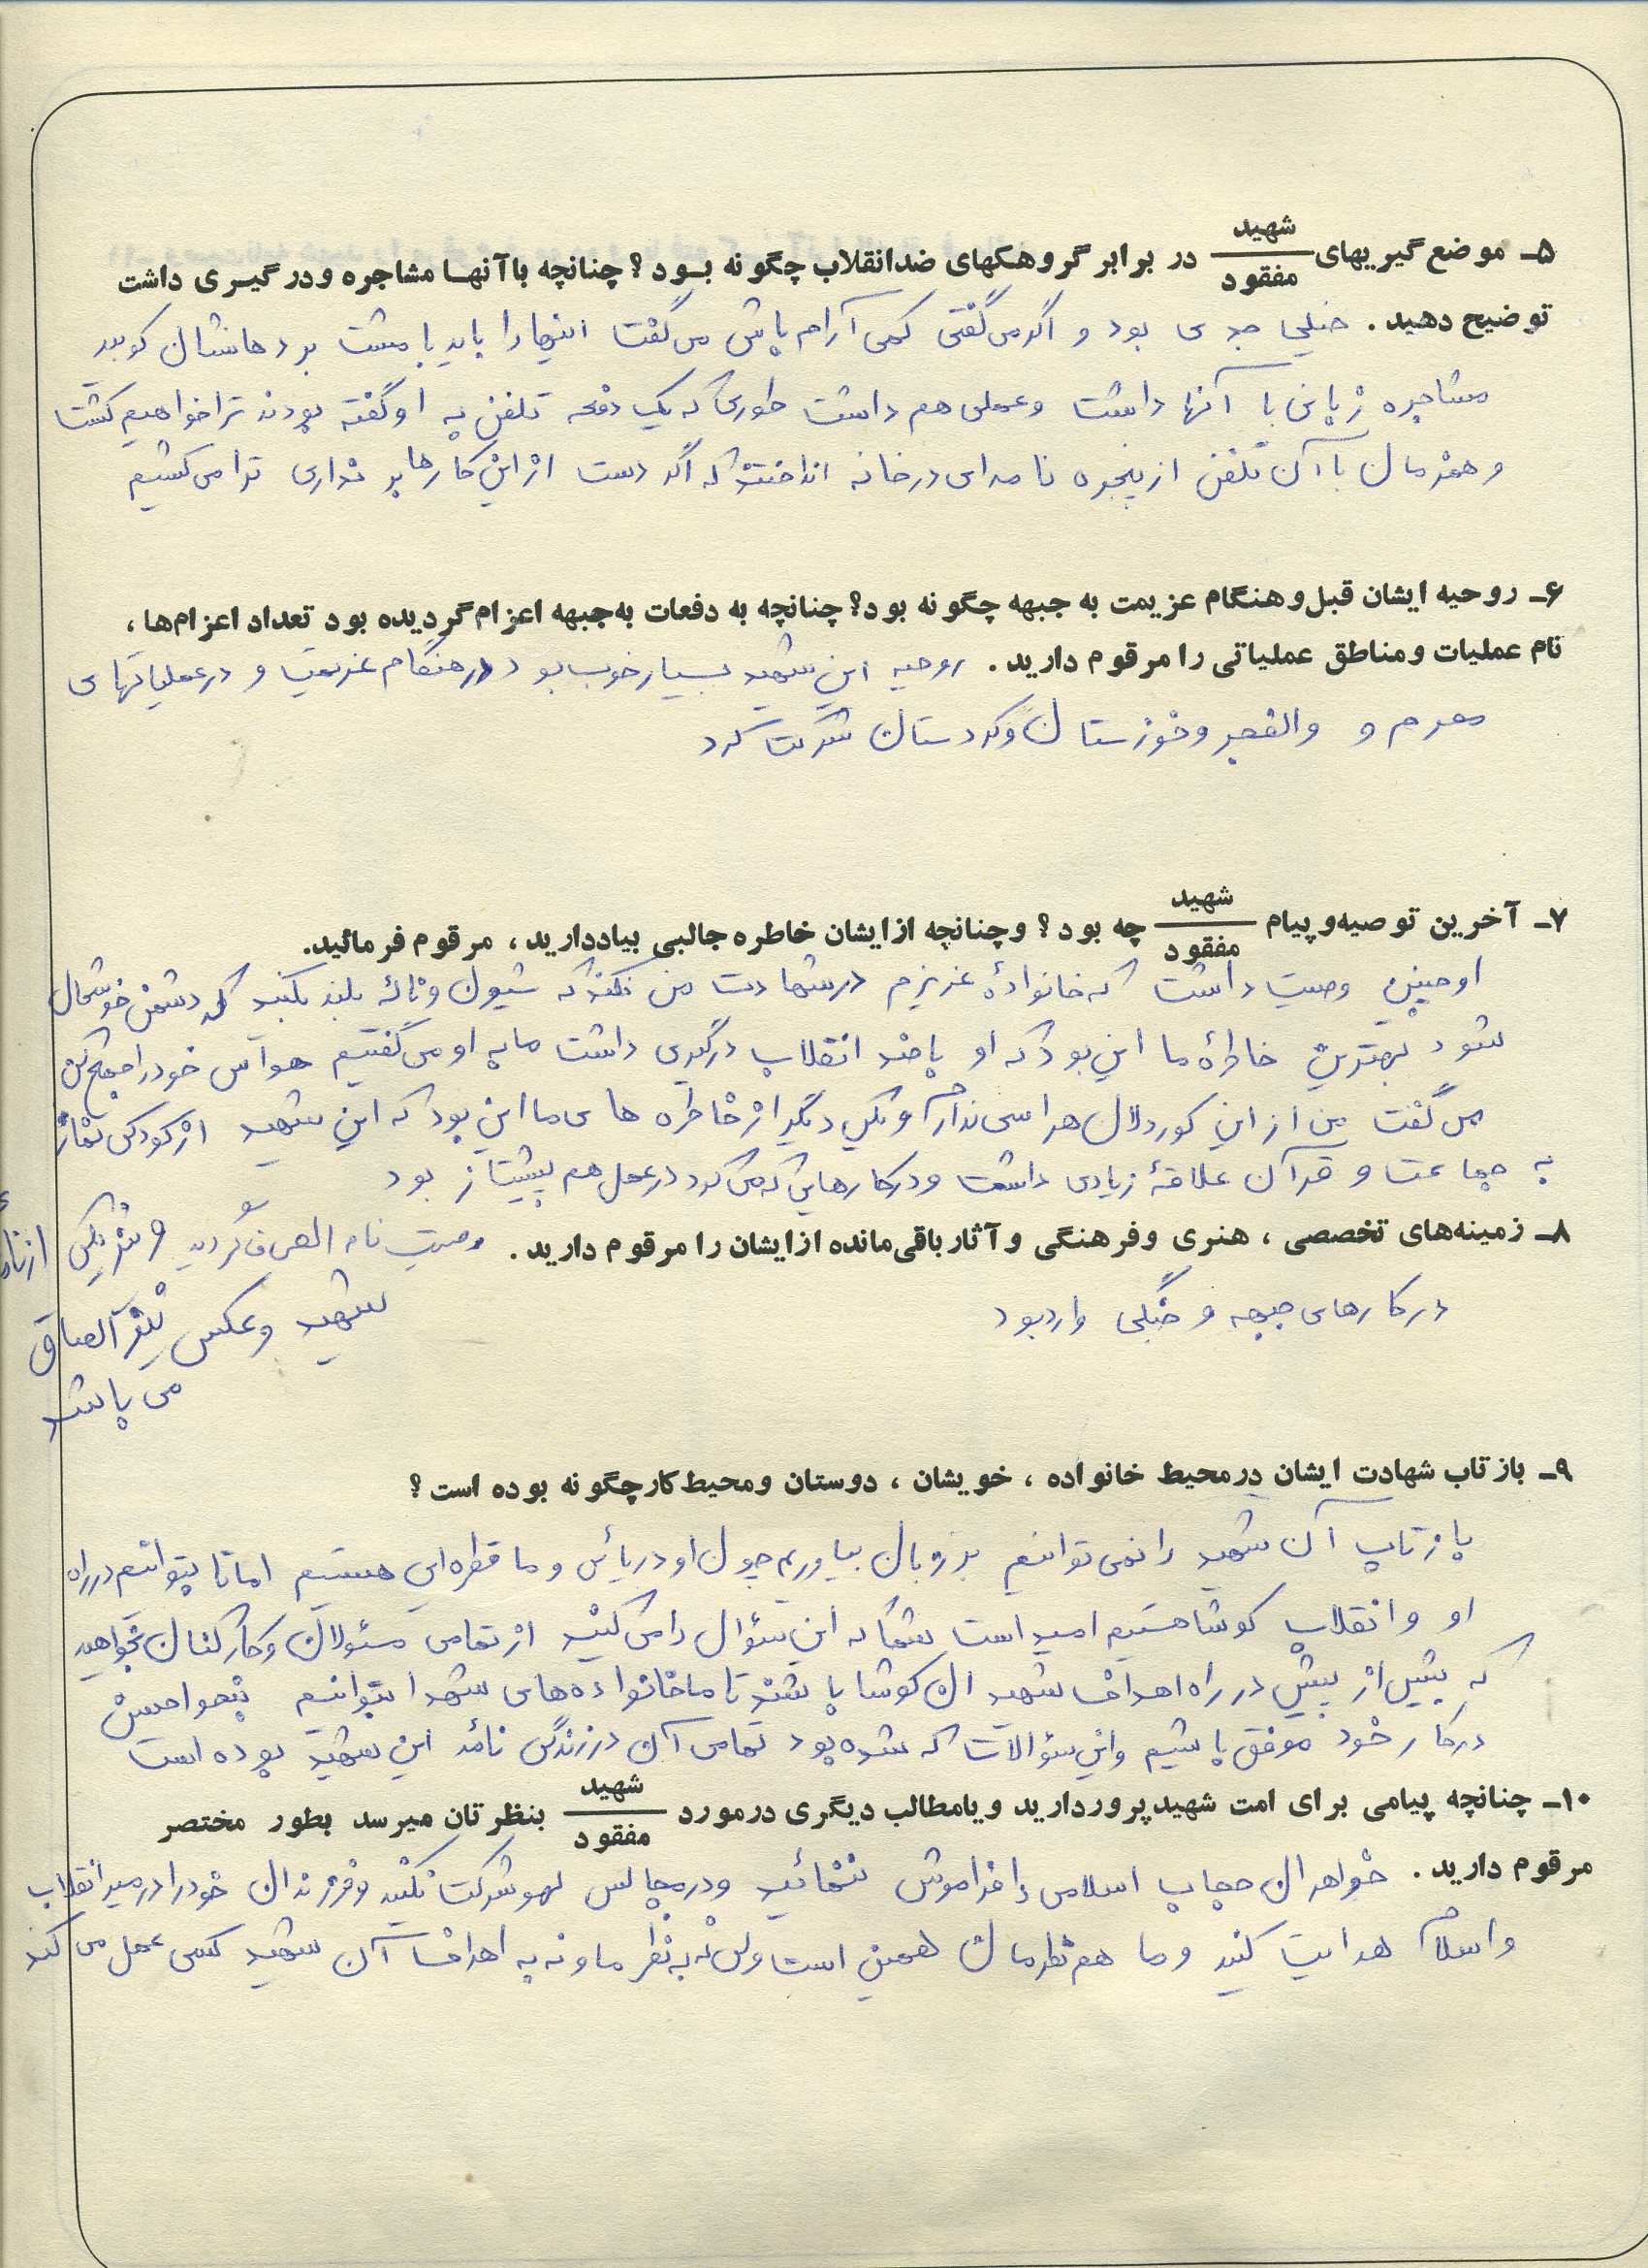 ۵ـ موضع‌گیریهای شهید / مفقود در برابر گروهکهای ضدانقلاب چگونه بود؟ چنانچه باآنها مشاجره ودرگیری داشت
توضیح دهید. خیلی جدی بود و اگر می گفتی کمی آرام باش می گفت اینها را باید با مشت بر دهانشان کوبید
مشاجره زبانی با آنها داشت و عملی هم داشت طوری که یک دفعه تلفنی به او گفته بودند ترا خواهیم کشت
و همزمان با آن تلفن از پنجره نامه ای در خانه انداختند که اگر دست از این کارها بر نداری ترا می کشیم
۶ـ روحیه ایشان قبل وهنگام عزیمت به جبهه چگونه بود؟ چنانچه به دفعات به‌جبهه اعزام گردیده بود تعداد اعزام‌ها،
نام عملیات ومناطق عملیاتی را مرقوم دارید. روحیه این شهید بسیار خوب بود در هنگام عزیمت و در عملیاتهای
محرم و والفجر و خوزستان و کردستان شرکت کرد
۷ـ آخرین توصیه‌وپیام شهید / مفقود چه بود؟ وچنانچه ازایشان خاطره جالبی بیاددارید، مرقوم فرمائید.
او چنین وصیت داشت که خانوادهٔ عزیزم در شهادت من نکند که شیون و ناله بلند بکنید که دشمن خوشحال
شود بهترین خاطرهٔ ما این بود که او با ضد انقلاب درگیری داشت ما به او می گفتیم هواس خود را جمع کن
می گفت من از این کوردلان هراسی ندارم و یکی دیگر از خاطره های ما این بود که این شهید از کودکی نماز
به جماعت و قرآن علاقهٔ زیادی داشت و در کارهایی که می کرد در عمل هم پیشتاز بود
۸ـ زمینه‌های تخصصی، هنری وفرهنگی و آثارباقی‌مانده ازایشان را مرقوم دارید. وصیت نامه گردید و نیز یکی از
شهید و عکس نیز الصاق
می باشد
در کارهای جبهه و جنگی وارد بود
۹ـ بازتاب شهادت ایشان درمحیط خانواده، خویشان، دوستان ومحیط‌کارچگونه بوده است؟
بازتاب آن شهید را نمی توانیم بر زبان بیاوریم چون او دریائی و ما قطره ای هستیم اما تا بتوانیم در راه
او و انقلاب کوشا هستیم امید است شما که این سؤال را می کنید از تمامی مسئولان و کارکنان بخواهید
که بیش از پیش در راه اهداف شهیدان کوشا باشند تا ما خانواده های شهدا بتوانیم بنحو احسن
در کار خود موفق باشیم و این سؤالات که شده بود تمامی آن در زندگی نامه این شهید بوده است
۱۰ـ چنانچه پیامی برای امت شهیدپروردارید ویامطالب دیگری درمورد شهید / مفقود بنظرتان میرسد بطور مختصر
مرقوم دارید. خواهران حجاب اسلامی را فراموش ننمائید و در مجالس لهو شرکت نکنید و فرزندان خود را در مسیر انقلاب
و اسلام هدایت کنید و ما هم نظرمان همین است ولی نه به نظر ما و نه به اهداف آن شهید کسی عمل می کند